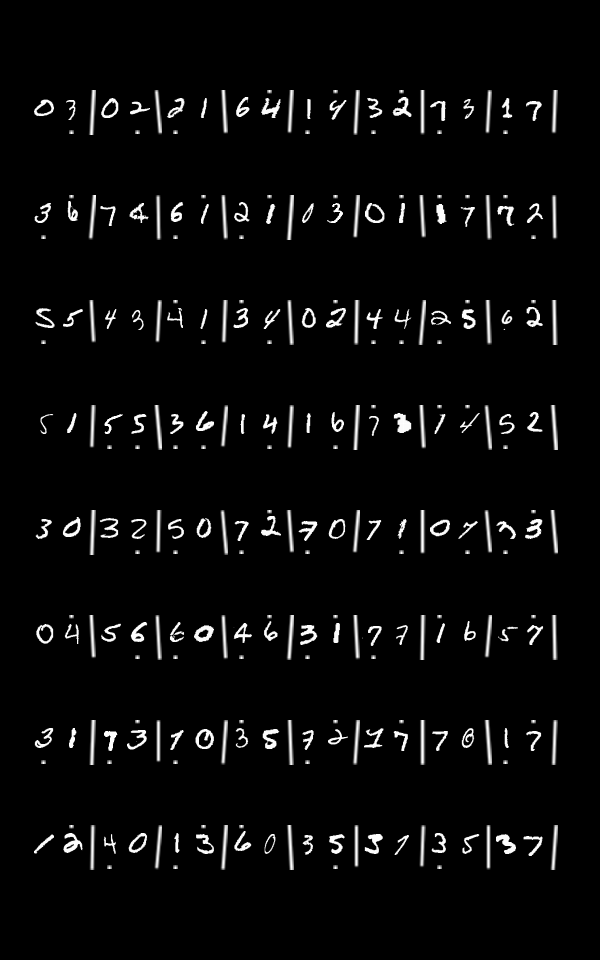 0 3 | 0 2 | 2 1 | 6 4 | 1 4 | 3 2 | 7 3 | 1 7 |
3 6 | 7 4 | 6 1 | 2 1 | 0 3 | 0 1 | 1 7 | 7 2 |
5 5 | 4 3 | 4 1 | 3 4 | 0 2 | 4 4 | 2 5 | 6 2 |
5 1 | 5 5 | 3 6 | 1 4 | 1 6 | 7 3 | 1 4 | 5 2 |
3 0 | 3 2 | 5 0 | 7 2 | 7 0 | 7 1 | 0 7 | 3 3 |
0 4 | 5 6 | 6 0 | 4 6 | 3 1 | 7 7 | 1 6 | 5 7 |
3 1 | 7 3 | 1 0 | 3 5 | 7 2 | 1 7 | 7 0 | 1 7 |
1 2 | 4 0 | 1 3 | 6 0 | 3 5 | 3 7 | 3 5 | 3 7 |